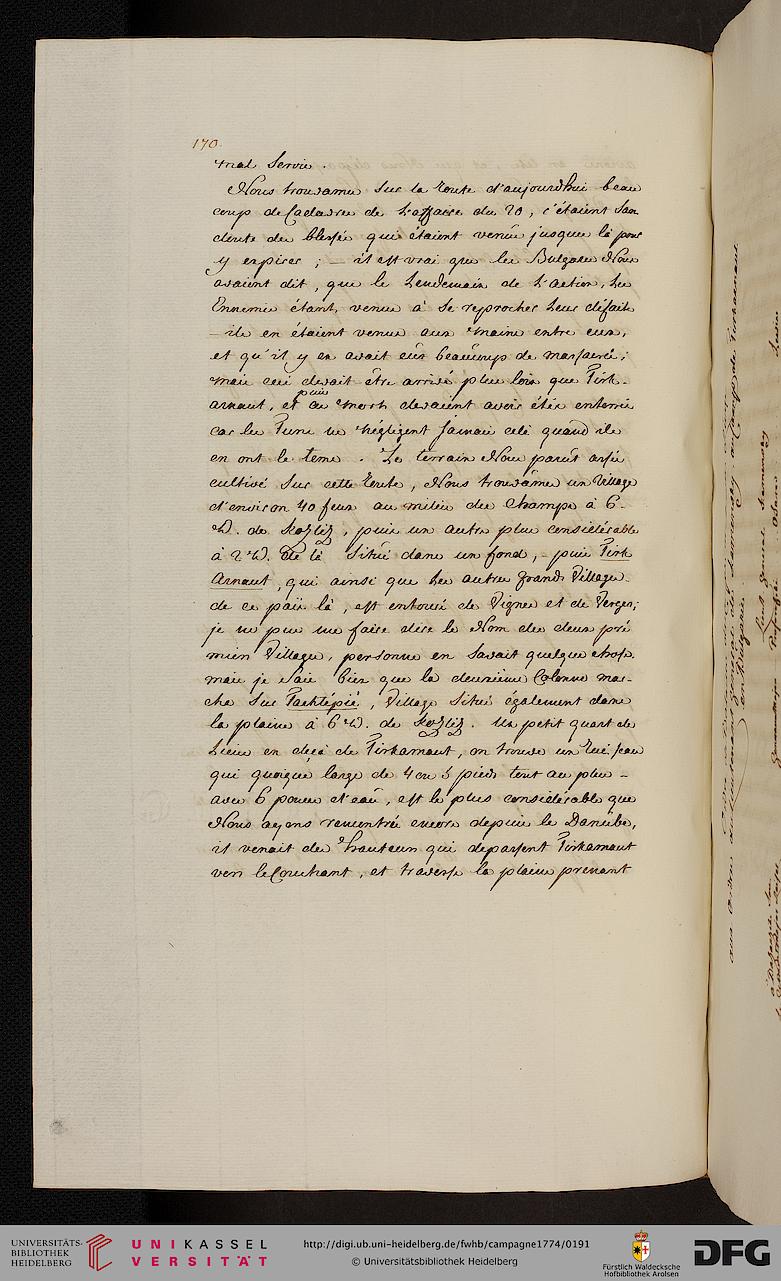 170.
mal Servis.
Nous trouvames sur la Route d'aujourdhui beau
coup de Cadavres de L'affaire du 20, c'étaient San
doute des blessés qui étaient venus jusques là pour
y expirer ; — il est vrai que les Bulgares Nous
avaient dit, que le Lendemain de L'action, les
Ennemis étant, venus à Se reprocher Leur défaite
— ils en étaient venus aux mains entre eux,
et qu'il y en avait eûs beaucoups de massacrés;
mais ceci devait être arrivé plus loin que Tirk-
arnaut, et puis ces morts devaient avoir étés enterrés
car les Turcs ne négligent Jamais celà quand ils
en ont le tems. Le terrain Nous parût assés
cultivé Sur cette Route, Nous trouvâmes un Village
d'environ 40 feux au milieu des Champs à 6.
W. de Kozliz, puis un autre plus considérable
à 2 W. de là Situé dans un fond, - puis Tirk
Arnaut, qui ainsi que les autres grands Villages
de ce païs là, est entouré de Vignes et de Verges;
je ne pus me faire dire le Nom des deux pré
miers Villages, personne en Savait quelque chose
mais je Sais bien que la deuxième Colonne mar-
cha Sur Tachtépié, Village Situé également dans
la plaine à 6 W. de Kozliz. Un petit quart de
Lieue en deçà de Tirkarnaut, on trouve un Ruisseau
qui quoique large de 4 ou 5 pieds tout au plus -
avec 6 pouces d'eau, est le plus considérable que
Nous ayons rencontrés encore depuis le Danube,
il venait des hauteurs qui depassent Tirkarnaut
vers le Couchant, et traverse la plaine prenant
UNIVERSITÄTS-
BIBLIOTHEK
HEIDELBERG
UNIKASSEL
VERSITÄT
http://digi.ub.uni-heidelberg.de/fwhb/campagne1774/0191
© Universitätsbibliothek Heidelberg
Fürstlich Waldecksche
Hofbibliothek Arolsen
DFG